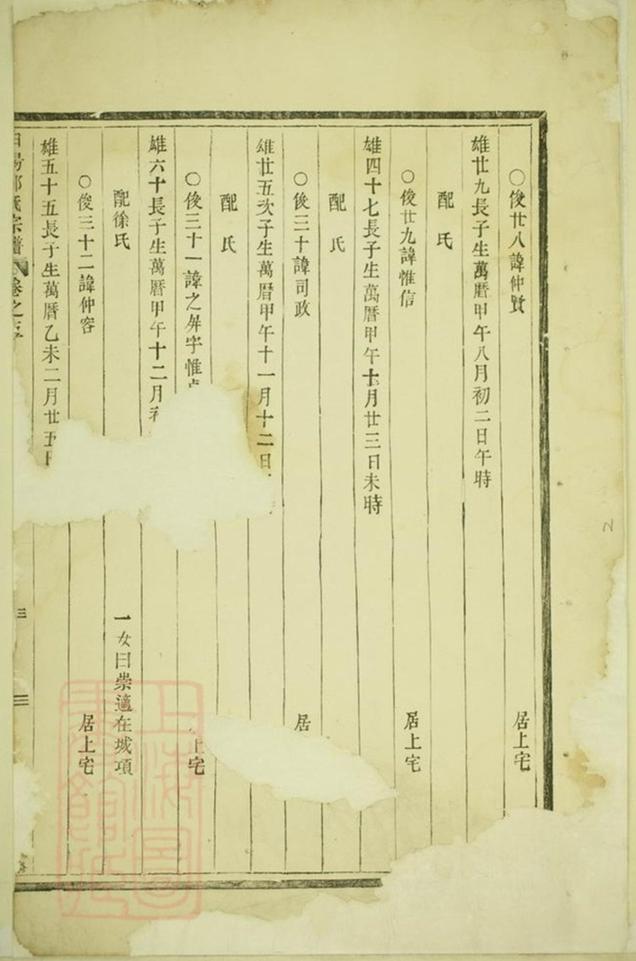 〇俊廿八諱仲賢 居上宅
雄廿九長子生萬曆甲午八月初二日午時
配 氏
〇俊廿九諱惟信 居上宅
雄四十七長子生萬曆甲午十月廿三日未時
配 氏
〇俊三十諱司政 居
雄廿五次子生萬曆甲午十一月十二日
配 氏
〇俊三十一諱之屏字惟 上宅
雄六十長子生萬曆甲午十二月
配徐氏 一女曰崇適在城項
〇俊三十二諱仲容 居上宅
雄五十五長子生萬曆乙未二月廿五日
宗譜 卷之 三